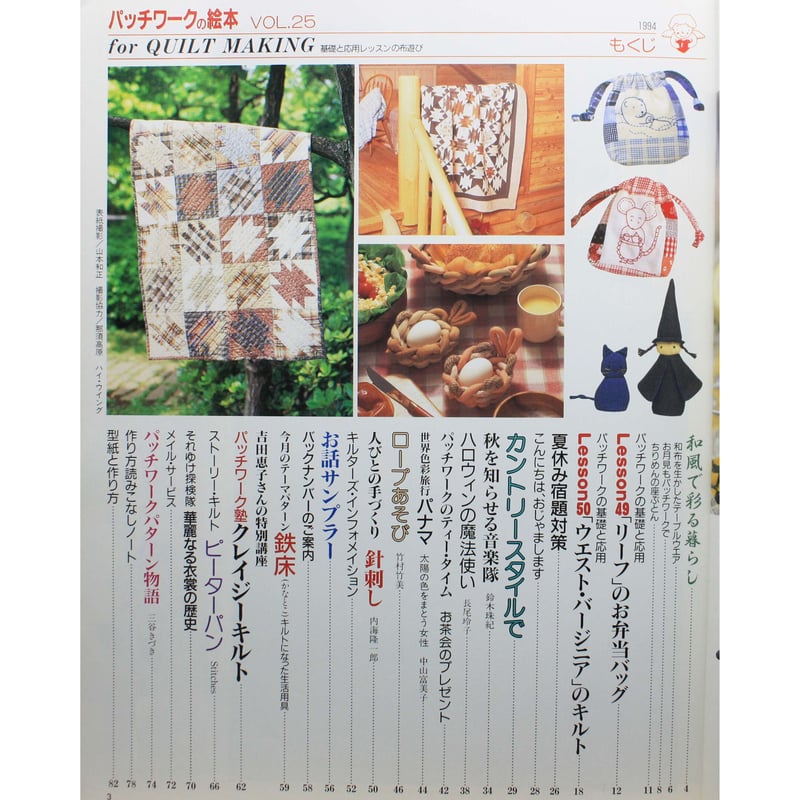 パッチワークの絵本 VOL.25
for QUILT MAKING 基礎と応用レッスンの布遊び
1994
もくじ
表紙撮影/山本和正 撮影協力/那須高原 ハイ・ウイング
和風で彩る暮らし
和布を生かしたテーブルウエア 4
お月見もパッチワークで 6
ちりめんの座ぶとん 8
パッチワークの基礎と応用 11
Lesson49「リーフ」のお弁当バッグ 12
パッチワークの基礎と応用
Lesson50「ウエスト・バージニア」のキルト 18
夏休み宿題対策 26
こんにちは、おじゃまします 28
カントリースタイルで 29
秋を知らせる音楽隊 鈴木珠紀 34
ハロウィンの魔法使い 長尾玲子 38
パッチワークのティータイム お茶会のプレゼント 42
世界色彩旅行 パナマ 太陽の色をまとう女性 中山富美子 44
ロープあそび 竹村竹美 46
人びとの手づくり 針刺し 内海隆一郎 50
キルターズ・インフォメイション 52
お話サンプラー 56
バックナンバーのご案内 58
今月のテーマパターン 鉄床(かなとこ)キルトになった生活用具 59
吉田恵子さんの特別講座
パッチワーク塾 クレイジーキルト 62
ストーリーキルト ピーターパン Stitches 66
それゆけ探検隊 華麗なる衣裳の歴史 70
メイル・サービス 72
パッチワークパターン物語 三谷さづき 74
作り方読みこなしノート 78
型紙と作り方 82
3